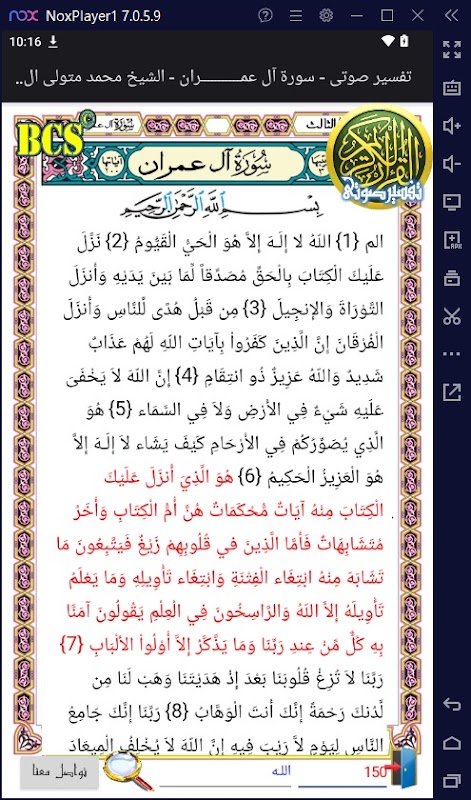 NoxPlayer1 7.0.5.9
10:16
تفسير صوتى - سورة آل عمـــــــران - الشيخ محمد متولى ال..
BCS
سُورَةُ آل عمران
بِسْمِ اللَّهِ الرَّحْمَٰنِ الرَّحِيمِ
القرآن الكريم
تفسير صوتى
الم {1} اللّهُ لا إِلَـهَ إِلاَّ هُوَ الْحَيُّ الْقَيُّومُ {2} نَزَّلَ
عَلَيْكَ الْكِتَابَ بِالْحَقِّ مُصَدِّقاً لِّمَا بَيْنَ يَدَيْهِ وَأَنزَلَ
التَّوْرَاةَ وَالإِنجِيلَ {3} مِن قَبْلُ هُدًى لِّلنَّاسِ وَأَنزَلَ
الْفُرْقَانَ إِنَّ الَّذِينَ كَفَرُواْ بِآيَاتِ اللّهِ لَهُمْ عَذَابٌ
شَدِيدٌ وَاللّهُ عَزِيزٌ ذُو انتِقَامٍ {4} إِنَّ اللّهَ لاَ يَخْفَىَ
عَلَيْهِ شَيْءٌ فِي الأَرْضِ وَلاَ فِي السَّمَاء {5} هُوَ
الَّذِي يُصَوِّرُكُمْ فِي الأَرْحَامِ كَيْفَ يَشَاء لاَ إِلَـهَ إِلاَّ
هُوَ الْعَزِيزُ الْحَكِيمُ {6} هُوَ الَّذِيَ أَنزَلَ عَلَيْكَ
الْكِتَابَ مِنْهُ آيَاتٌ مُّحْكَمَاتٌ هُنَّ أُمُّ الْكِتَابِ وَأُخَرُ
مُتَشَابِهَاتٌ فَأَمَّا الَّذِينَ في قُلُوبِهِمْ زَيْغٌ فَيَتَّبِعُونَ مَا
تَشَابَهَ مِنْهُ ابْتِغَاء الْفِتْنَةِ وَابْتِغَاء تَأْوِيلِهِ وَمَا يَعْلَمُ
تَأْوِيلَهُ إِلاَّ اللّهُ وَالرَّاسِخُونَ فِي الْعِلْمِ يَقُولُونَ آمَنَّا
بِهِ كُلٌّ مِّنْ عِندِ رَبِّنَا وَمَا يَذَّكَّرُ إِلاَّ أُوْلُواْ الألْبَابِ {7}
رَبَّنَا لاَ تُزِغْ قُلُوبَنَا بَعْدَ إِذْ هَدَيْتَنَا وَهَبْ لَنَا مِن
لَّدُنكَ رَحْمَةً إِنَّكَ أَنتَ الْوَهَّابُ {8} رَبَّنَا إِنَّكَ جَامِعُ
النَّاسِ لِيَوْمٍ لاَّ رَيْبَ فِيهِ إِنَّ اللّهَ لاَ يُخْلِفُ الْمِيعَادَ
150
الله
تواصل معنا